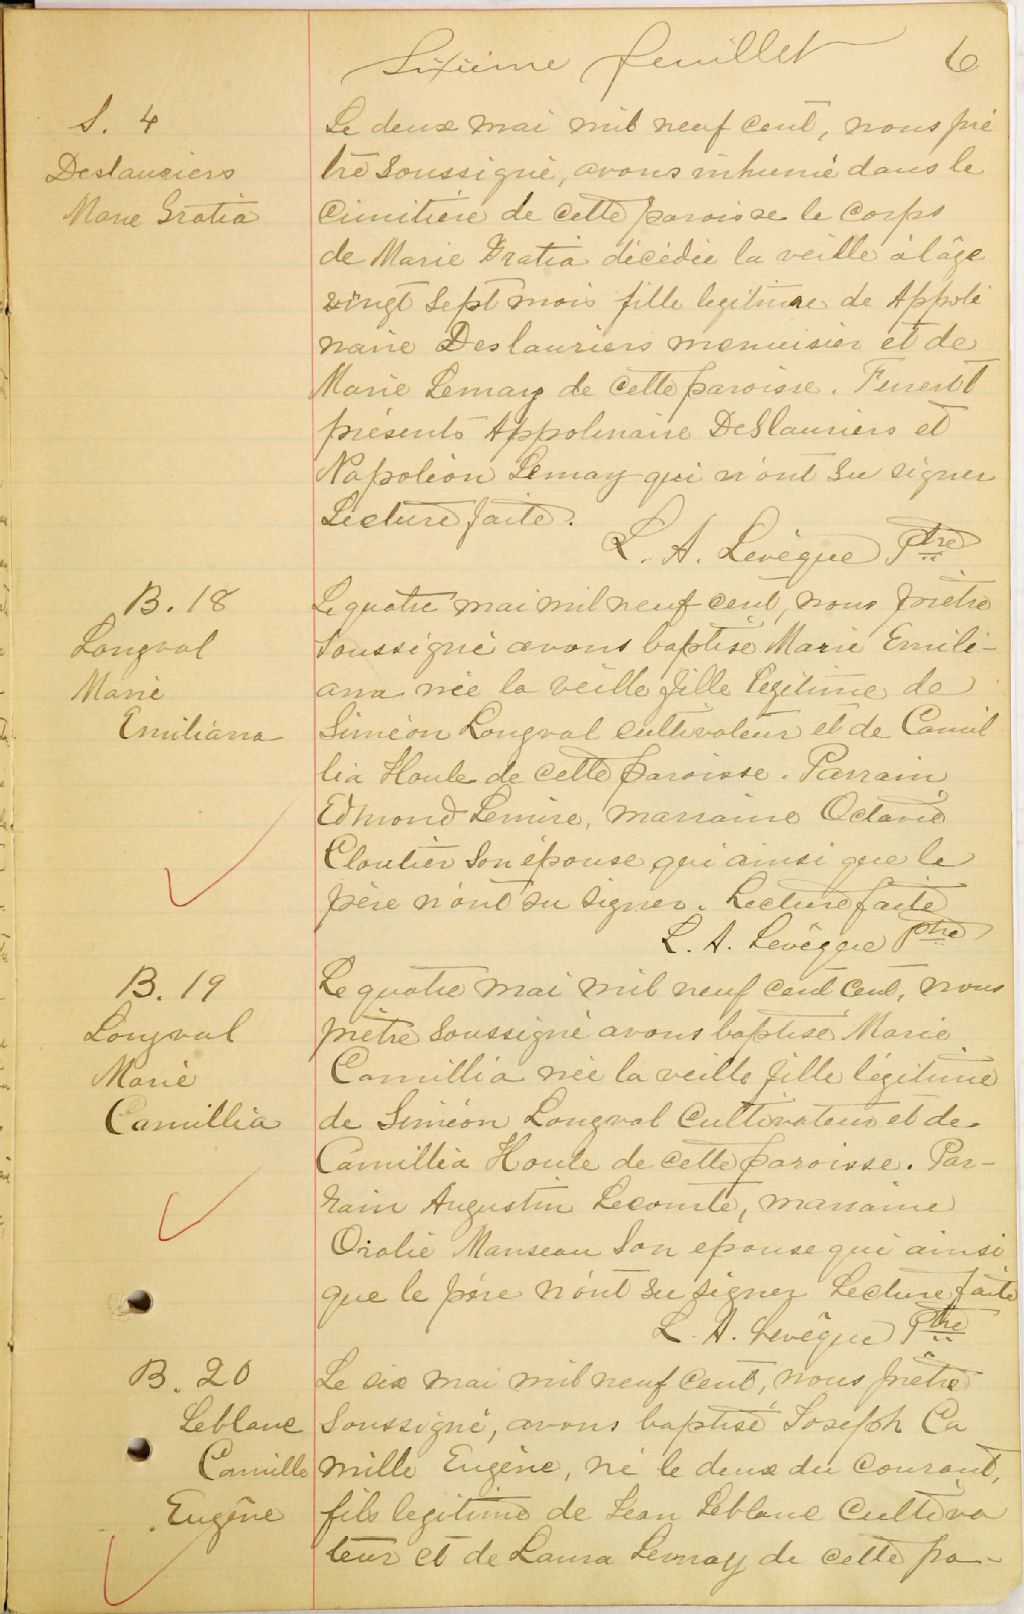 Sixième feuillet 6
S. 4
Deslauriers
Marie Gratia
Le deux mai mil neuf cent, nous prê
tre soussigné, avons inhumé dans le
cimitière de cette paroisse le corps
de Marie Gratia décédée la veille à l'âge
vingt sept mois fille legitime de Appoli
naire Deslauriers menuisier et de
Marie Lemay de cette paroisse. Furent
présents Appolinaire Deslauriers et
Napoléon Lemay qui n'ont su signer
Lecture faite.
L. A. Levêque Ptre
B. 18
Longval
Marie
Emiliana
Le quatre mai mil neuf cent, nous prêtre
soussigné avons baptisé Marie Emili-
ana née la veille fille legitime de
Siméon Longval cultivateur et de Camil
lia Houle de cette paroisse. Parrain
Edmond Lemire, marraine Octavie
Cloutier son épouse qui ainsi que le
père n'ont su signer. Lecture faite
L. A. Levêque Ptre
B. 19
Longval
Marie
Camillia
Le quatre mai mil neuf cent cent, nous
prêtre soussigné avons baptisé Marie
Camillia née la veille fille légitime
de Siméon Longval cultivateur et de
Camillia Houle de cette paroisse. Par-
rain Augustin Lecomte, marraine
Oralie Manseau son epouse qui ainsi
que le père n'ont su signer Lecture faite
L. A. Levêque Ptre
B. 20
Leblanc
Camille
Eugène
Le six mai mil neuf cent, nous prêtre
soussigné, avons baptisé Joseph Ca
mille Eugène, né le deux du courant,
fils legitime de Jean Leblanc cultiva
teur et de Laura Lemay de cette pa-